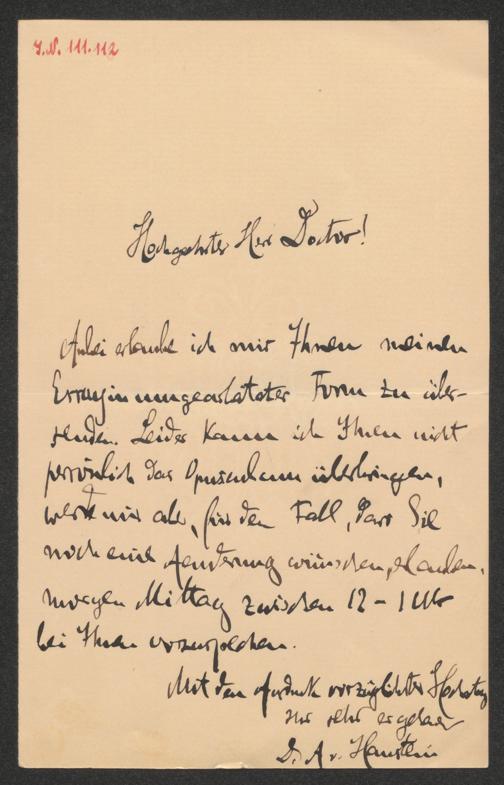 I.N. 111.112
Hochgeehrter Herr Doctor!
Anbei erlaube ich mir Ihnen meinen
in umgearbeiteter Form zu über-
senden. Leider kann ich Ihnen nicht
persönlich das Opusculum überbringen,
werde mir aber, für den Fall, dass Sie
noch eine Aenderung wünschen, erlauben,
morgen Mittag zwischen 12 - 1 Uhr
bei Ihnen vorzusprechen.
Mit dem Ausdruck vorzüglichster Hochachtg
Ihr sehr ergebener
Dr. A v. Hanstein